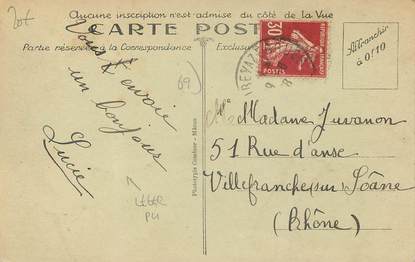 20t
Aucune inscription n'est admise du côté de la Vue
CARTE POST
Partie réservée à la Correspondance
Exclusiv
Affranchir
à 0f10
30
POSTES
69
Vous envoie
un bonjour
Lucie
LEGER
PLI
Phototypie Combier - Mâcon
Madame Juvanon
51 Rue d'anse
Villefranche sur Saône
(Rhône)